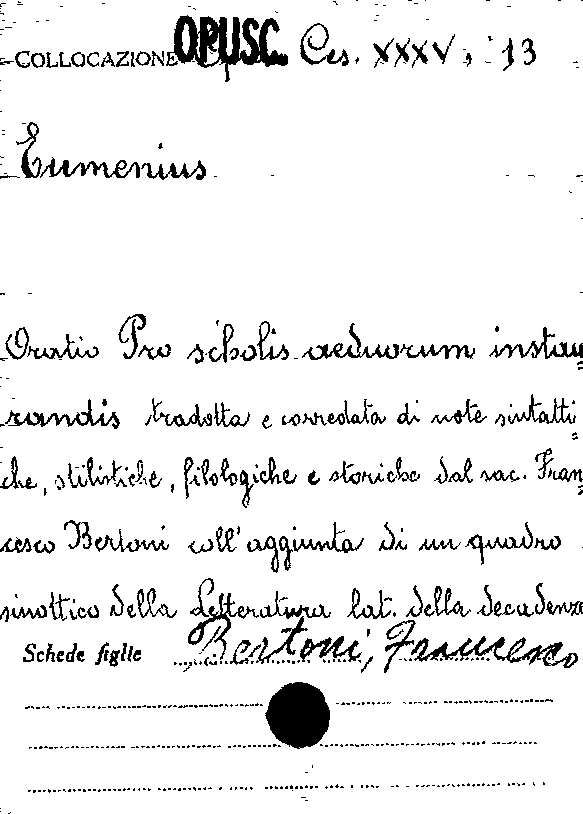 COLLOCAZIONE OPUSC. Ces. XXXV, 13
Eumenius
Oratio Pro scholis aeduorum instau
randis tradotta e corredata di note sintatti=
che, stilistiche, filologiche e storiche dal sac. Fran=
cesco Bertoni coll'aggiunta di un quadro
sinottico della Letteratura lat. della decadenza
Schede figlie Bertoni, Francesco